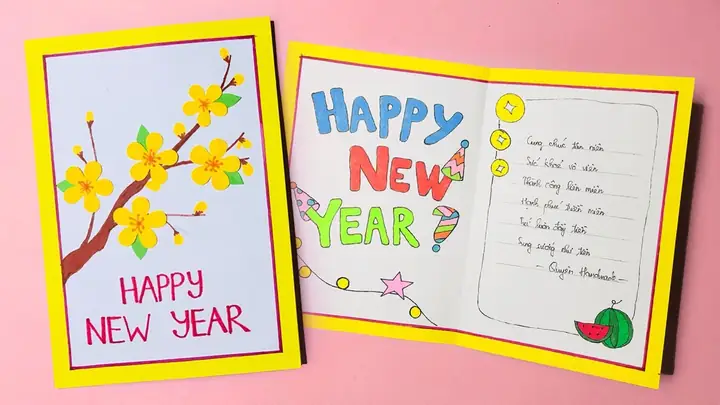 HAPPY
NEW YEAR
HAPPY
NEW
YEAR
Cung chúc tân niên
Sức khoẻ vô viên
Thành công liên miên
Hạnh phúc triền miên
Túi luôn đầy tiền
Sung sướng như tiên
- Quyên Handmade -